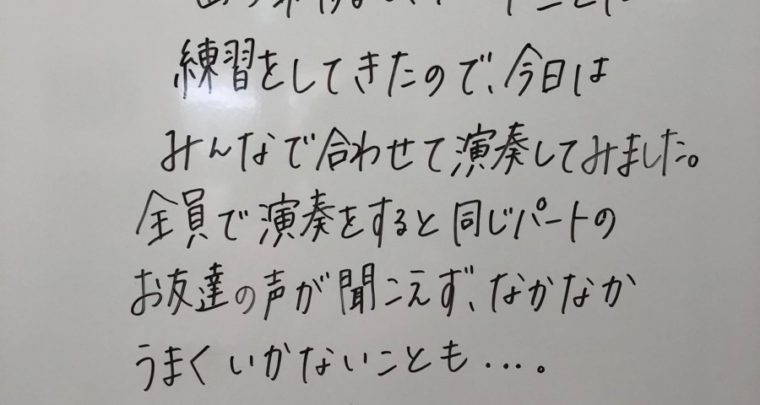 練習をしてきたので、今日は
みんなで合わせて演奏してみました。
全員で演奏をすると同じパートの
お友達の声が聞こえず、なかなか
うまくいかないことも…。